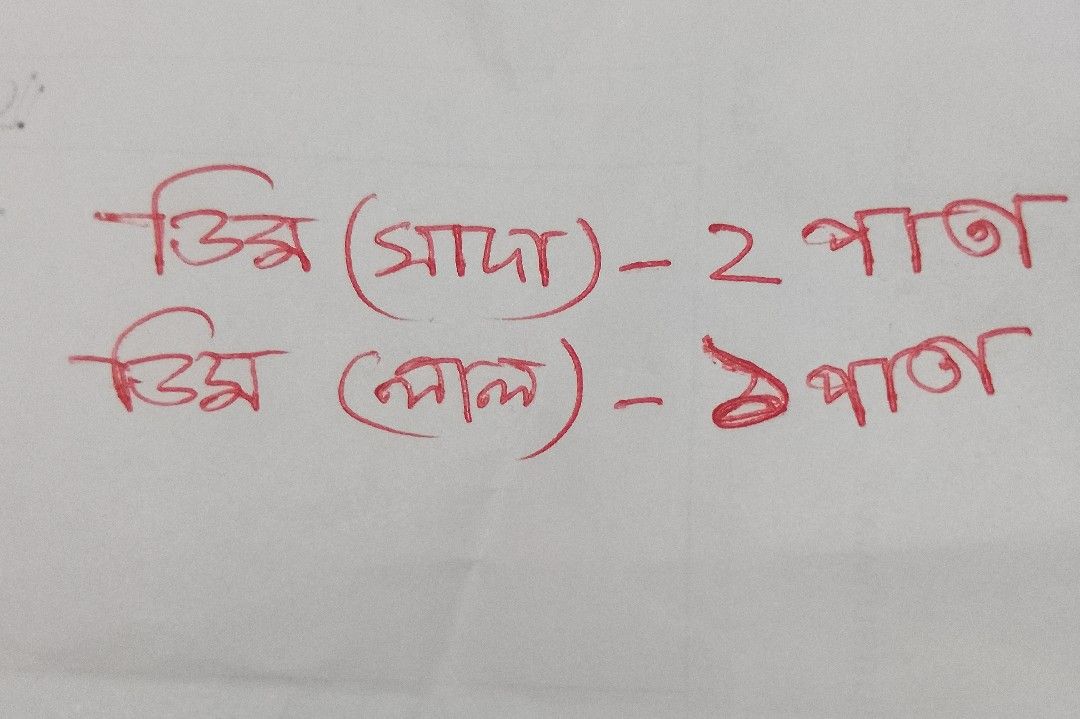 ডিম (সাদা) - ২ পাতা
ডিম (লাল) - ১ পাতা